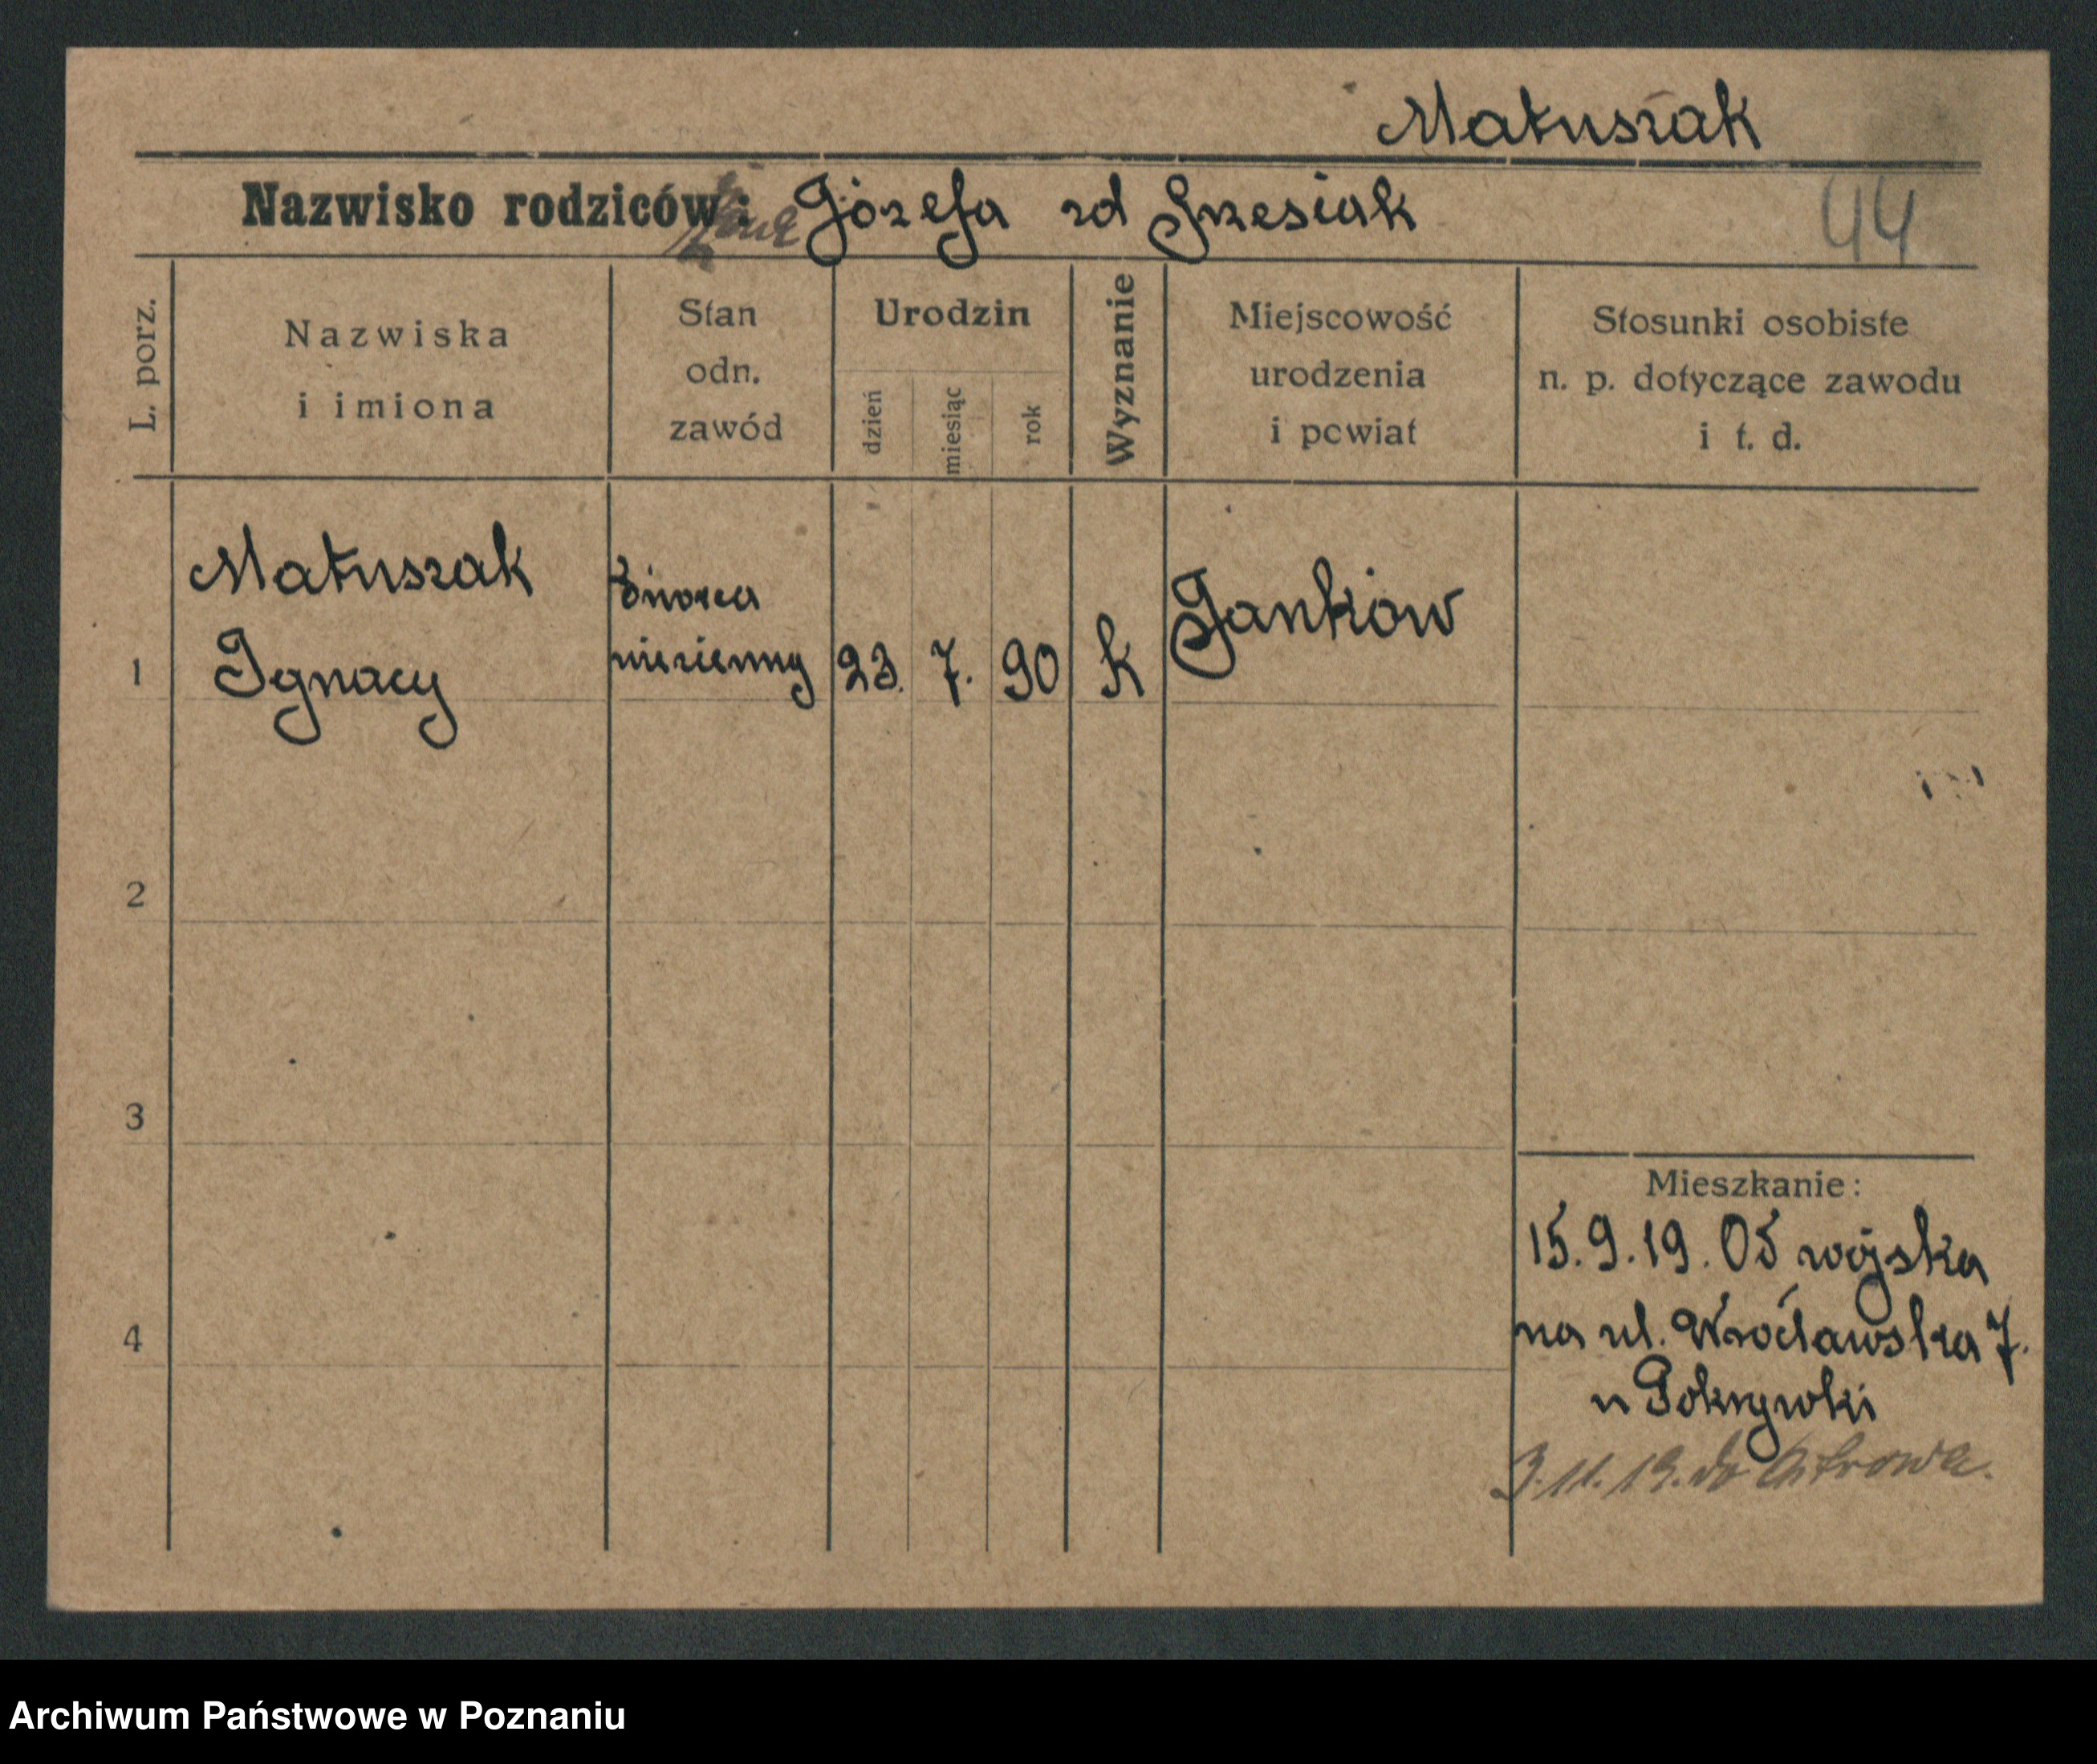 Matuszak
Nazwisko rodziców: Józefa zd Grzesiak
44
L. porz.
Nazwiska
i imiona
Stan
odn.
zawód
Urodzin
dzień
miesiąc
rok
Wyznanie
Miejscowość
urodzenia
i powiat
Stosunki osobiste
n. p. dotyczące zawodu
i t. d.
1
Matuszak
Ignacy
23. 7. 90
k
Janków
2
3
4
Mieszkanie:
15.9.19. Od wojska
na ul. Wrocławska 7.
u Pokrywki
3.11.19. do Ostrowa.
Archiwum Państwowe w Poznaniu